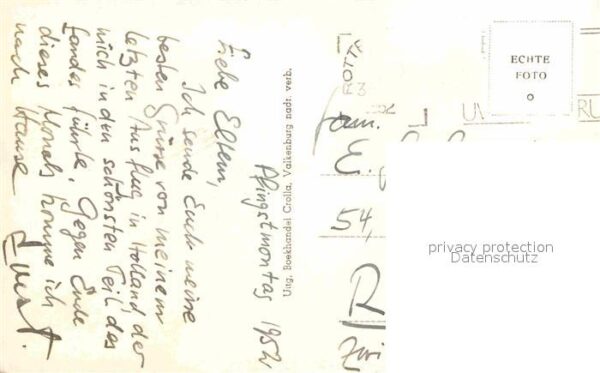 Pfingstmontag 1952
Liebe Eltern,
Ich sende Euch meine
besten Grüsse von meinem
letzten Ausflug in Holland, der
mich in den schönsten Teil des
Landes führte. Gegen Ende
dieses Monats komme ich
nach Hause
Ernst.
Uitg. Boekhandel Crolla, Valkenburg nadr. verb.
ECHTE
FOTO
Fam.
E.
54,
R
privacy protection
Datenschutz